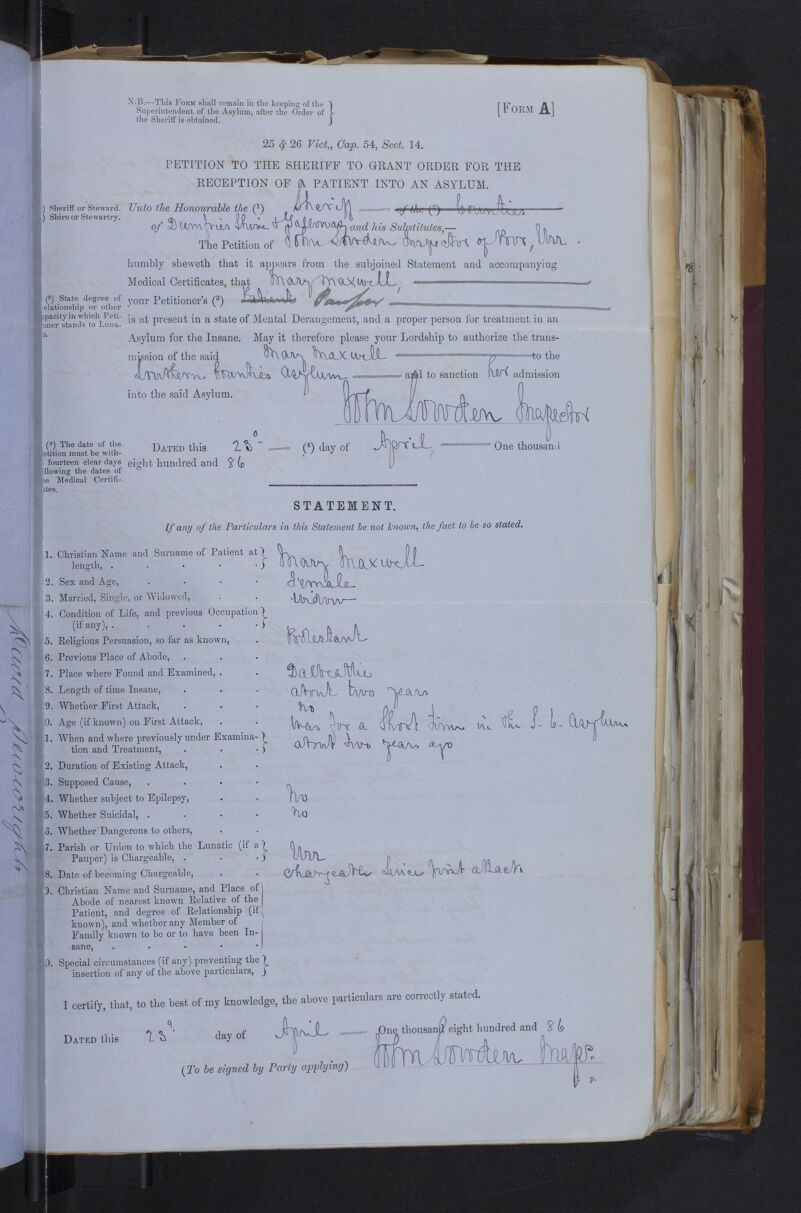 N.B.—This Form shall remain in the keeping of the
Superintendent of the Asylum, after the Order of
the Sheriff is obtained.
[Form A]
25 & 26 Vict., Cap. 54, Sect. 14.
PETITION TO THE SHERIFF TO GRANT ORDER FOR THE
RECEPTION OF A PATIENT INTO AN ASYLUM.
) Sheriff or Steward.
) Shire or Stewartry.
Unto the Honourable the (¹) Sheriff of the (²) Counties
of Dumfries Shire & Galloway and his Substitutes,—
The Petition of John Lowden Inspector of Poor, Urr.
humbly sheweth that it appears from the subjoined Statement and accompanying
Medical Certificates, that Mary Maxwell,
(³) State degree of
elationship or other
apacity in which Peti-
oner stands to Luna-
your Petitioner's (³) Patient Pauper
is at present in a state of Mental Derangement, and a proper person for treatment in an
Asylum for the Insane. May it therefore please your Lordship to authorize the trans-
mission of the said Mary Maxwell to the
Southern Counties Asylum and to sanction her admission
into the said Asylum.
John Lowden Inspector
(⁴) The date of the
etition must be with-
fourteen clear days
llowing the dates of
e Medical Certifi-
ates.
Dated this 23d (⁴) day of April One thousand
eight hundred and 86
STATEMENT.
If any of the Particulars in this Statement be not known, the fact to be so stated.
1. Christian Name and Surname of Patient at
length, . Mary Maxwell
2. Sex and Age, Female
3. Married, Single, or Widowed, Widow
4. Condition of Life, and previous Occupation
(if any), .
5. Religious Persuasion, so far as known, Protestant
6. Previous Place of Abode, .
7. Place where Found and Examined, . Dalbeattie
8. Length of time Insane, about two years
9. Whether First Attack, no
0. Age (if known) on First Attack, Was for a Short time in the S. C. Asylum
1. When and where previously under Examina-
tion and Treatment, about two years ago
2. Duration of Existing Attack,
3. Supposed Cause, .
4. Whether subject to Epilepsy, No
5. Whether Suicidal, . no
6. Whether Dangerous to others,
7. Parish or Union to which the Lunatic (if a
Pauper) is Chargeable, . Urr
8. Date of becoming Chargeable, Chargeable since first attack
9. Christian Name and Surname, and Place of
Abode of nearest known Relative of the
Patient, and degree of Relationship (if
known), and whether any Member of
Family known to be or to have been In-
sane, .
0. Special circumstances (if any) preventing the
insertion of any of the above particulars,
I certify, that, to the best of my knowledge, the above particulars are correctly stated.
Dated this 23d. day of April One thousand eight hundred and 86
John Lowden Inspr.
(To be signed by Party applying)
p.
David